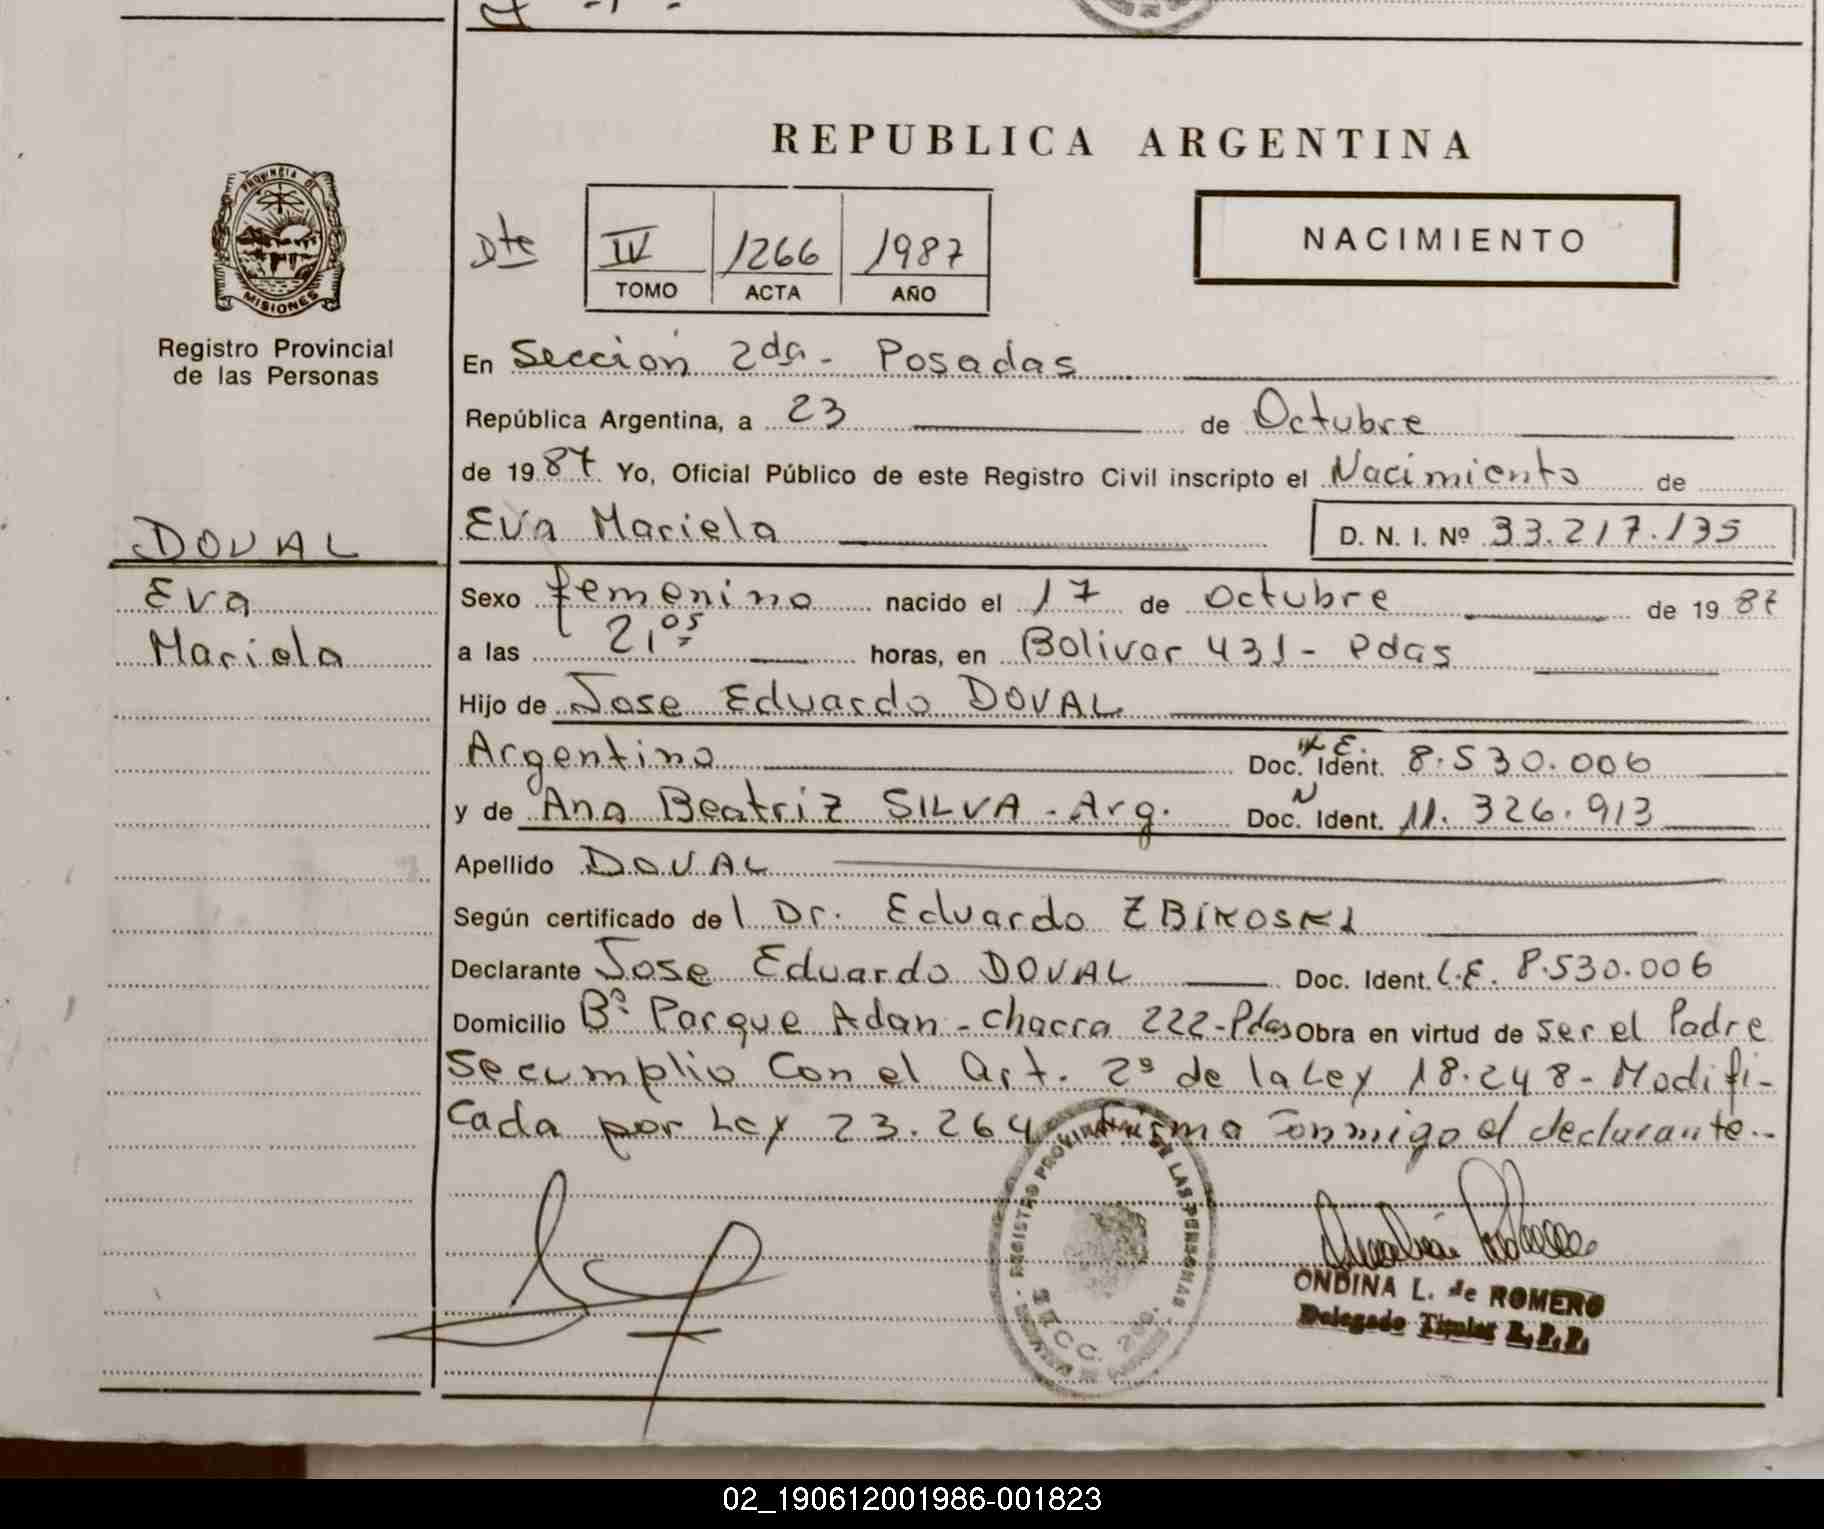 REPUBLICA ARGENTINA
PROVINCIA DE
MISIONES
Registro Provincial
de las Personas
Dte IV 1266 1987
TOMO ACTA AÑO
NACIMIENTO
En Sección 2da - Posadas
República Argentina, a 23 de Octubre
de 1987 Yo, Oficial Público de este Registro Civil inscripto el Nacimiento de
DOVAL
Eva
Mariela
Eva Mariela D. N. I. Nº 33.217.135
Sexo femenino nacido el 17 de octubre de 1987
a las 21 05 horas, en Bolivar 431 - Pdas
Hijo de Jose Eduardo DOVAL
Argentino Doc. Ident. L.E. 8.530.006
y de Ana Beatriz SILVA - Arg. Doc. N Ident. 11.326.913
Apellido DOVAL
Según certificado de l Dr. Eduardo ZBIKOSKI
Declarante Jose Eduardo DOVAL Doc. Ident. L.E. 8.530.006
Domicilio Bº Parque Adan - chacra 222 - Pdas Obra en virtud de ser el Padre
Se cumplio Con el Art. 2º de la Ley 18.248 - Modifi-
cada por Ley 23.264 Firma Conmigo el declarante.-
REGISTRO PROVINCIAL DE LAS PERSONAS
SECC. 2da.
ONDINA L. de ROMERO
Delegado Titular R.P.P.
02_190612001986-001823